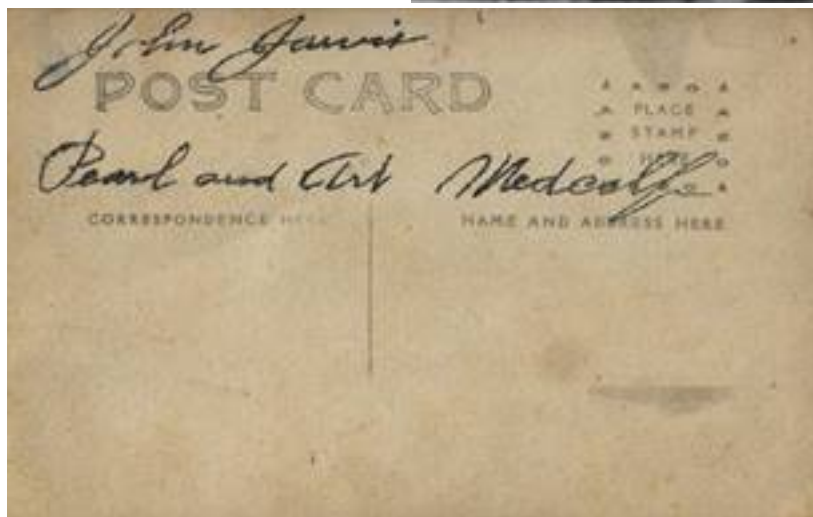 John Jarvis
POST CARD
PLACE
STAMP
HERE
Pearl and Art Medcalf
CORRESPONDENCE HERE
NAME AND ADDRESS HERE